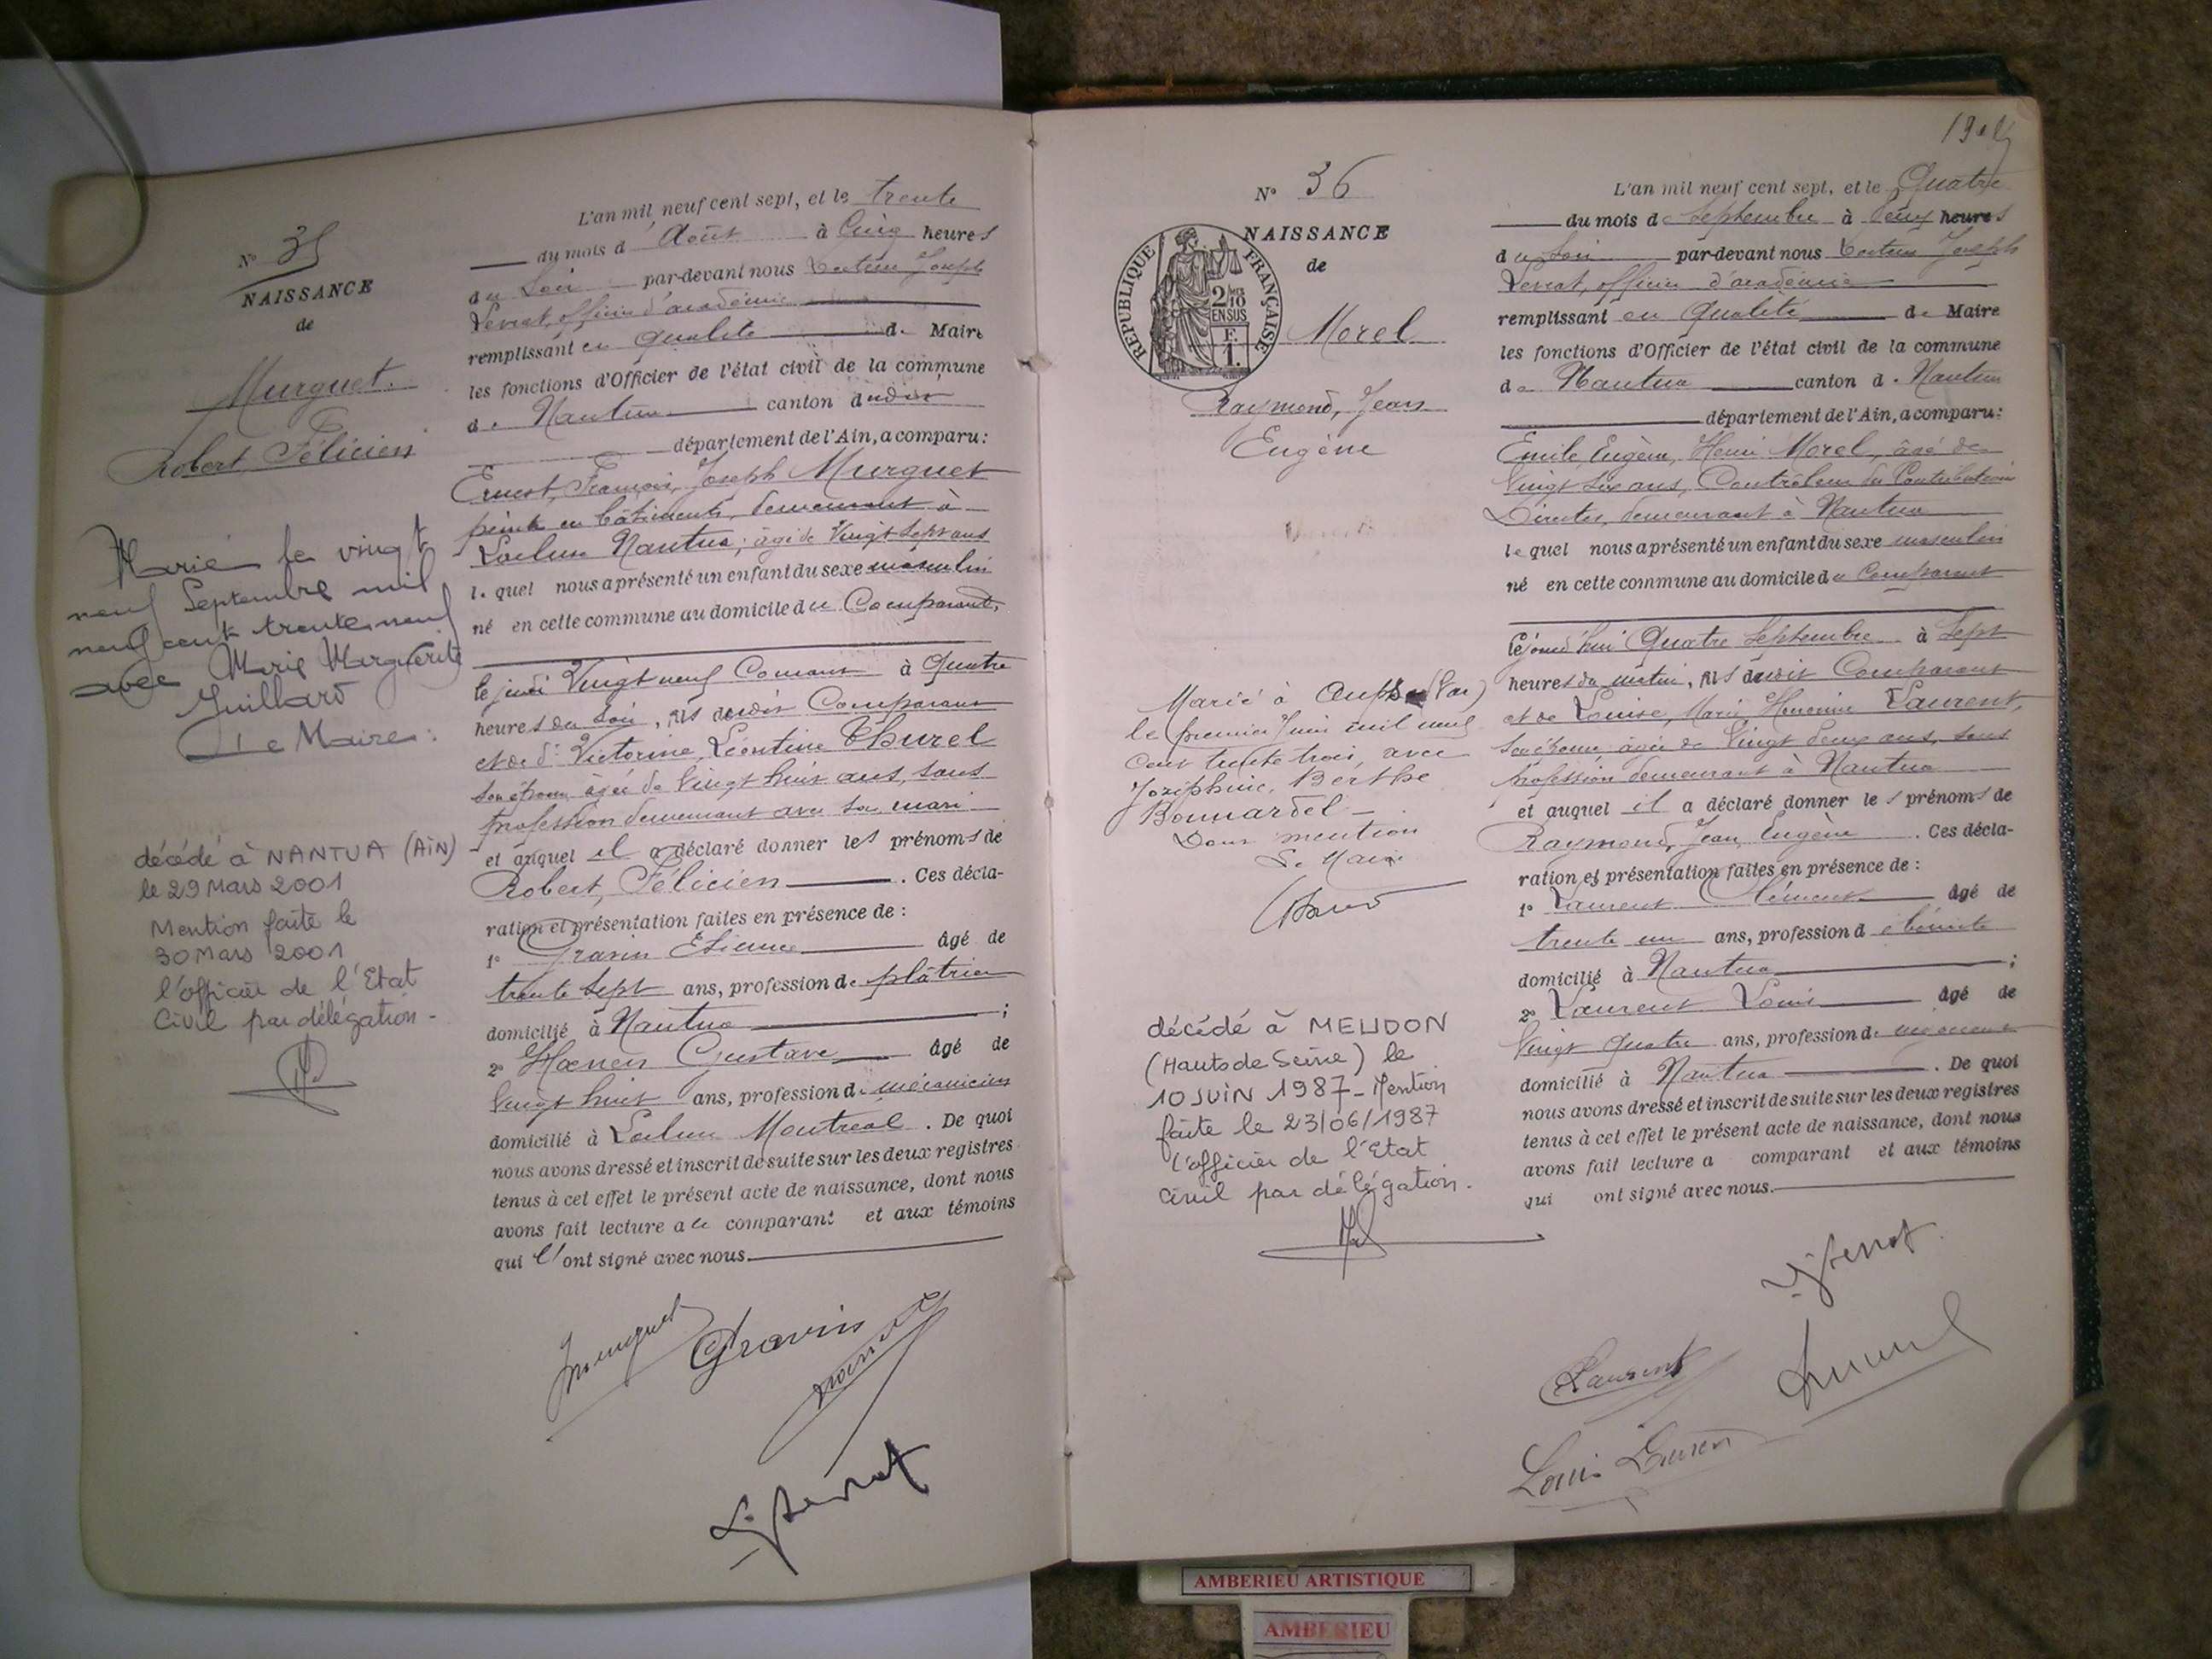 N° 35
NAISSANCE
de
Murguet
Robert, Félicien
Marié le vingt
neuf Septembre mil
neuf cent trente neuf
avec Marie Marguerite
Guillard
Le Maire :
décédé à NANTUA (AIN)
le 29 Mars 2001
Mention faite le
30 Mars 2001
l'officier de l'Etat
Civil par délégation -
L'an mil neuf cent sept, et le trente
du mois d'Août à Cinq heures
du Soir par-devant nous Joseph
officier d'académie
remplissant en qualité de Maire
les fonctions d'Officier de l'état civil de la commune
de Nantua canton dudit
département de l'Ain, a comparu :
Ernest, François, Joseph Murguet
peintre en bâtiments, demeurant à
Nantua ; âgé de Vingt Sept ans
lequel nous a présenté un enfant du sexe masculin
né en cette commune au domicile du Comparant,
le jeudi Vingt neuf Courant à Quatre
heures du Soir, fils dudit Comparant
et de de Victorine, Léontine Thurel
son épouse, âgée de Vingt huit ans, sans
profession demeurant avec son mari
et auquel il a déclaré donner les prénoms de
Robert, Félicien . Ces décla-
ration et présentation faites en présence de :
1° Gravin Etienne âgé de
trente Sept ans, profession de plâtrier
domicilié à Nantua ;
2° Gustave âgé de
Vingt huit ans, profession de mécanicien
domicilié à Montréal . De quoi
nous avons dressé et inscrit de suite sur les deux registres
tenus à cet effet le présent acte de naissance, dont nous
avons fait lecture au comparant et aux témoins
qui l'ont signé avec nous.
Murguet
Gravin
N° 36
NAISSANCE
de
RÉPUBLIQUE FRANÇAISE
2/10 EN SUS
F.
1.
Morel
Raymond, Jean
Eugène
Marié à Aups (Var)
le premier Juin mil neuf
cent trente trois, avec
Joséphine, Berthe
Bonnardel -
Dont mention
Le Maire
décédé à MEUDON
(Hauts de Seine) le
10 JUIN 1987 - Mention
faite le 23/06/1987
l'officier de l'Etat
civil par délégation.
L'an mil neuf cent sept, et le Quatre
du mois de Septembre à Deux heures
du Soir par-devant nous Joseph
officier d'académie
remplissant en Qualité de Maire
les fonctions d'Officier de l'état civil de la commune
de Nantua canton de Nantua
département de l'Ain, a comparu :
Emile, Eugène, Henri Morel, âgé de
Vingt Six ans, Contrôleur des Contributions
Directes, demeurant à Nantua
lequel nous a présenté un enfant du sexe masculin
né en cette commune au domicile du Comparant
Cejourd'hui Quatre Septembre à Sept
heures du matin, fils dudit Comparant
et de Louise, Marie, Laurent,
son épouse, âgée de Vingt deux ans, sans
profession demeurant à Nantua
et auquel il a déclaré donner les prénoms de
Raymond, Jean, Eugène . Ces décla-
ration et présentation faites en présence de :
1° Laurent Clément âgé de
trente un ans, profession d'ébéniste
domicilié à Nantua ;
2° Laurent Louis âgé de
Vingt Quatre ans, profession de
domicilié à Nantua . De quoi
nous avons dressé et inscrit de suite sur les deux registres
tenus à cet effet le présent acte de naissance, dont nous
avons fait lecture a comparant et aux témoins
qui ont signé avec nous.
Laurent
Louis Laurent
AMBERIEU ARTISTIQUE
AMBERIEU